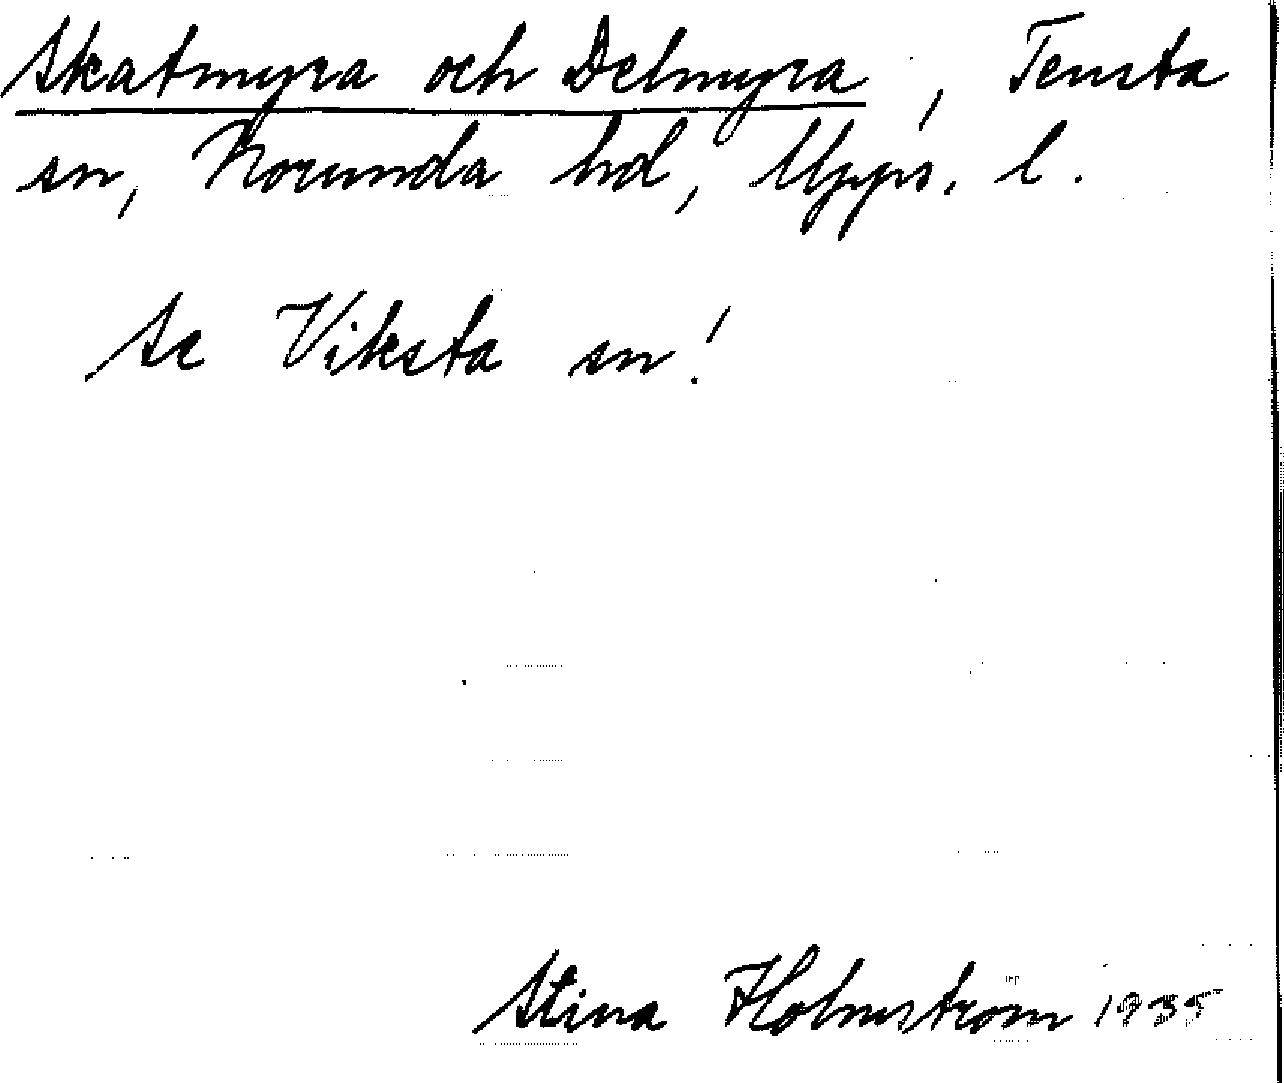 Skatmyra och Delmyra, Tensta
sn, Norunda hd, Upps. l.
Se Viksta sn!
Stina Holmström 1935